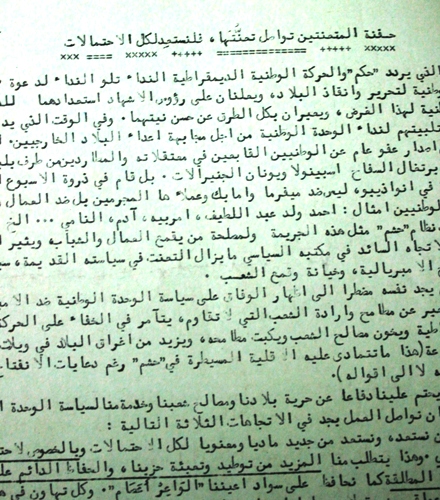 حفنة المتعنتين تواصل تعنتها، فلنستعد لكل الاحتمالات
xxx ==== xxxxx +++++ ============== +++++ xxxxx
الذي يردد "حكم" والحركة الوطنية الديمقراطية النداء تلو النداء لدعوة
وطنية لتحرير وانقاذ البلاد، ويعلنان على رؤوس الاشهاد استعدادهما
نية لهذا الغرض، ويعبران بكل الطرق عن حسن نيتهما. وفي الوقت الذي
تلبيتهم لنداء الوحدة الوطنية من اجل مجابهة اعداء البلاد الخارجيين
اصدار عفو عام عن الوطنيين القابعين في معتقلاته والمطاردين من طرف
يرتغال السفاح اسبينولا ويونان الجنيرالات. بل قام في ذروة الاسبوع
في انواذيبو، ليس ضد ميفرما وامايك وعملاءها المجرمين بل ضد العمال
لوطنيين امثال: احمد ولد عبد اللطيف، امربيه، آدم، النامي ... الخ
نظام "حشم" مثل هذه الجريمة ولمصلحة من يقمع العمال والشباب ويثير
لاتجاه السائد في مكتبه السياسي ما يزال التعنت في سياسته القديمة،
الامبريالية، وخيانة وقمع الشعب.
يجد نفسه مضطرا الى اظهار الوفاق على سياسة الوحدة الوطنية ضد
عبر عن مطامح وارادة الشعب التي لا تقاوم، يتآمر في الخفاء على الحركة
وطنية ويخون مصالح الشعب ويكبت مطامحه، ويزيد من اغراق البلاد في ويلات
عة (هذا ما تتمادى عليه الاقلية المسيطرة في "حشم" رغم دعايات
لا الى اقواله).
يحتم علينا دفاعا عن حرية بلادنا ومصالح شعبنا وخدمة منا لسياسة الوحدة
ان نواصل العمل بجد في الاتجاهات الثلاثة التالية:
ن نستعد، ونستعد من جديد ماديا ومعنويا لكل الاحتمالات وبالخصوص
ي. وهذا يتطلب منا المزيد من توطيد وتعبئة حزبنا، والحفاظ الدائم
المطلقة كما نحافظ على سواد اعيننا وكل تهاون في